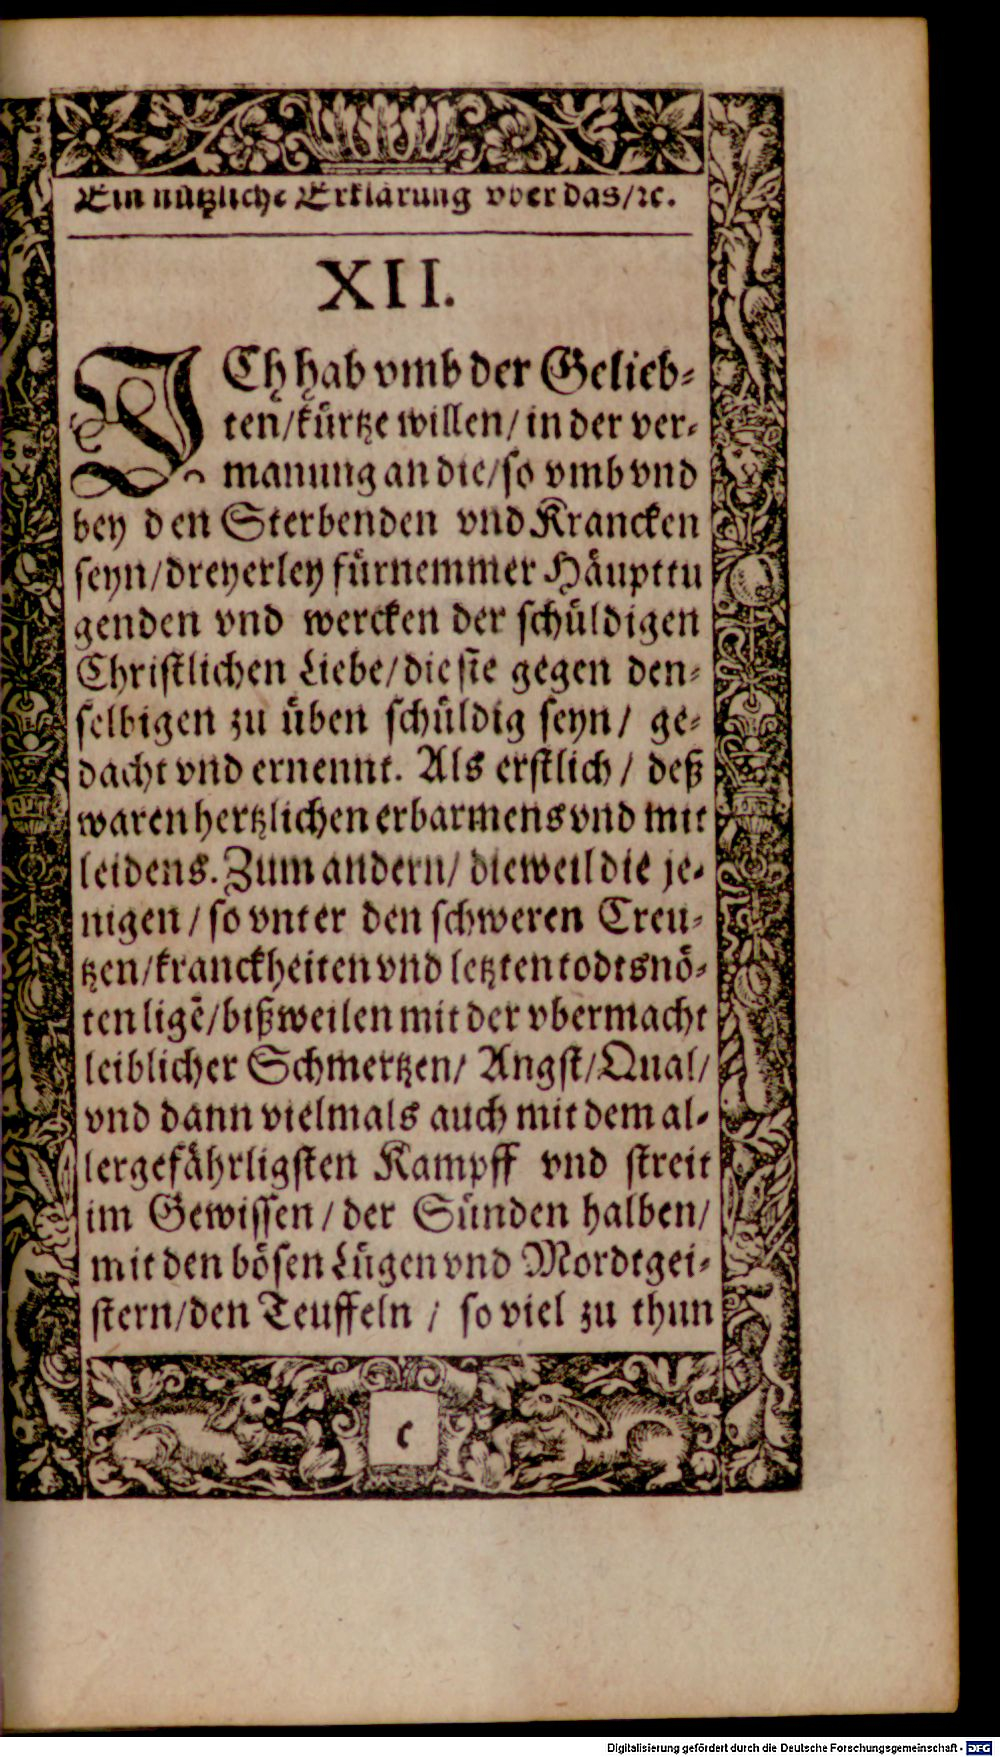 Ein nützliche Erklärung vber das/ꝛc.
XII.
ICh hab vmb der Gelieb-
ten/kürtze willen/in der ver-
manung an die/so vmb vnd
bey den Sterbenden vnd Krancken
seyn/dreyerley fürnemmer Häupttu
genden vnd wercken der schüldigen
Christlichen Liebe/die sie gegen den-
selbigen zu üben schüldig seyn/ ge-
dacht vnd ernennt. Als erstlich/ deß
waren hertzlichen erbarmens vnd mit
leidens. Zum andern/ dieweil die je-
nigen/so vnter den schweren Creu-
tzen/kranckheiten vnd letzten todtsnö-
ten ligẽ/bißweilen mit der vbermacht
leiblicher Schmertzen/ Angst/Qual/
vnd dann vielmals auch mit dem al-
lergefährligsten Kampff vnd streit
im Gewissen/der Sünden halben/
mit den bösen Lügen vnd Mordtgei-
stern/den Teuffeln / so viel zu thun
c
Digitalisierung gefördert durch die Deutsche Forschungsgemeinschaft - DFG